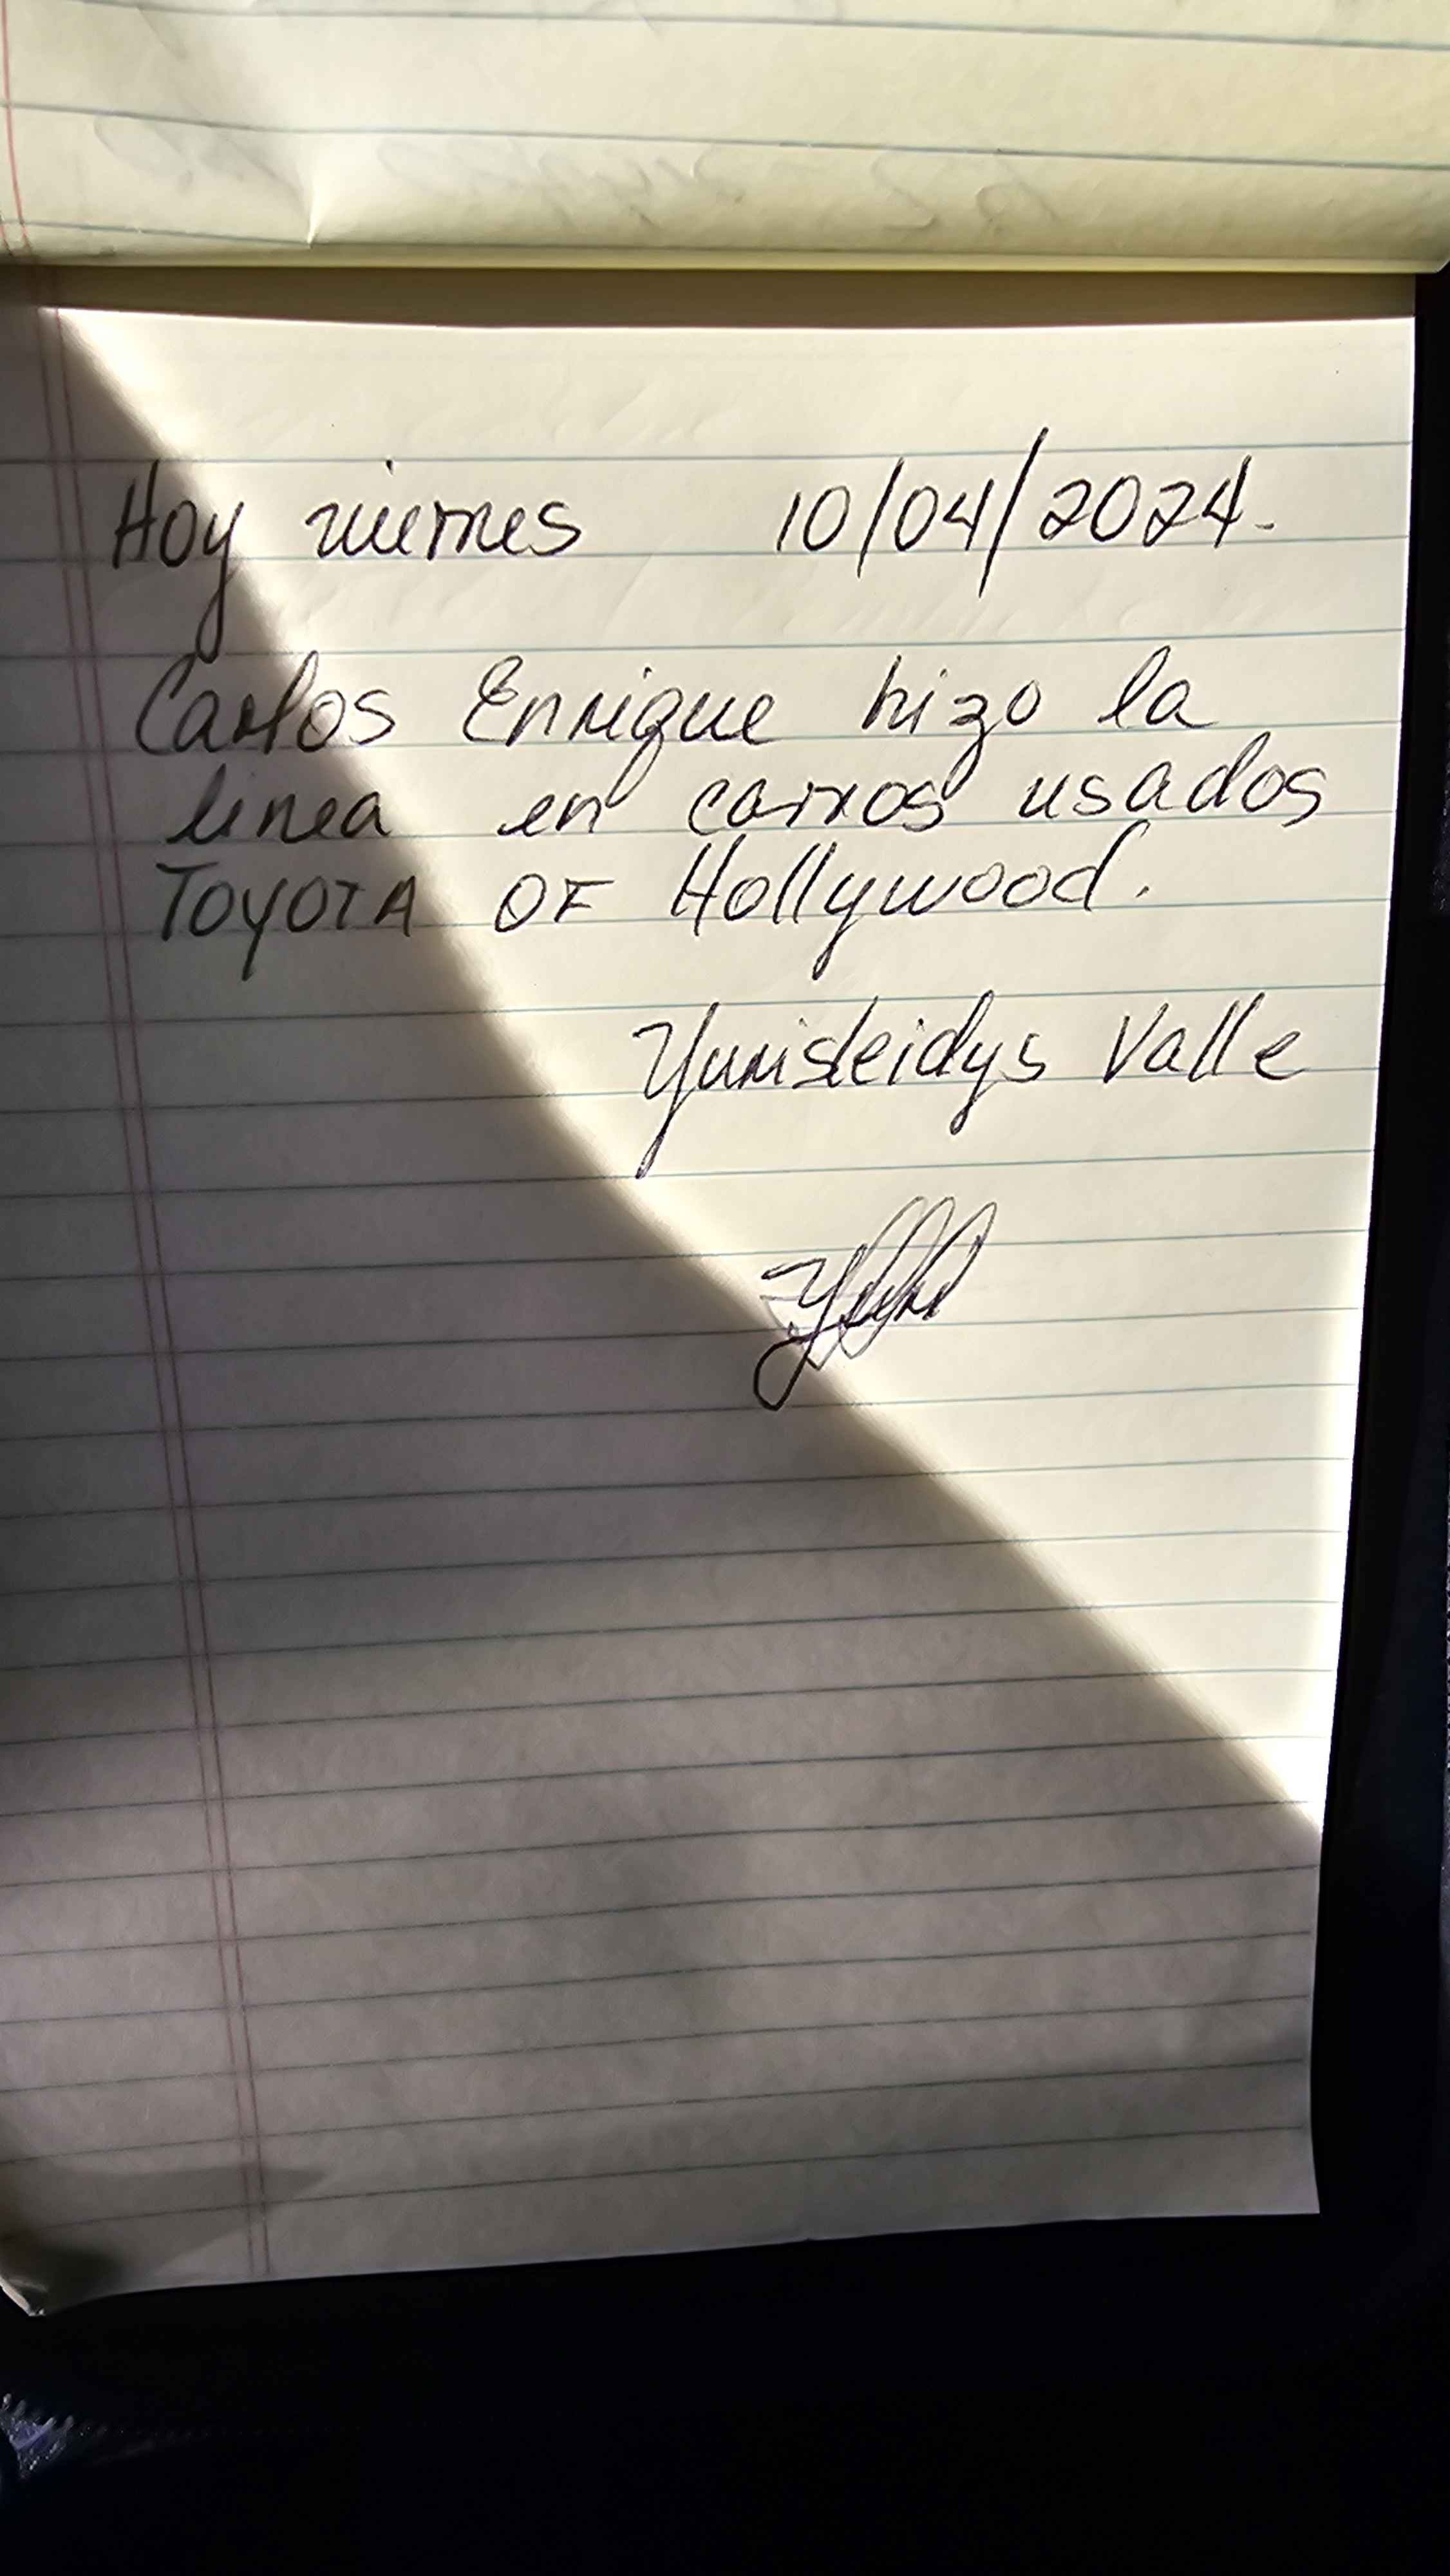 Hoy viernes 10/04/2024.
Carlos Enrique hizo la
linea en carros usados
TOYOTA OF Hollywood.
Yurisleidys Valle